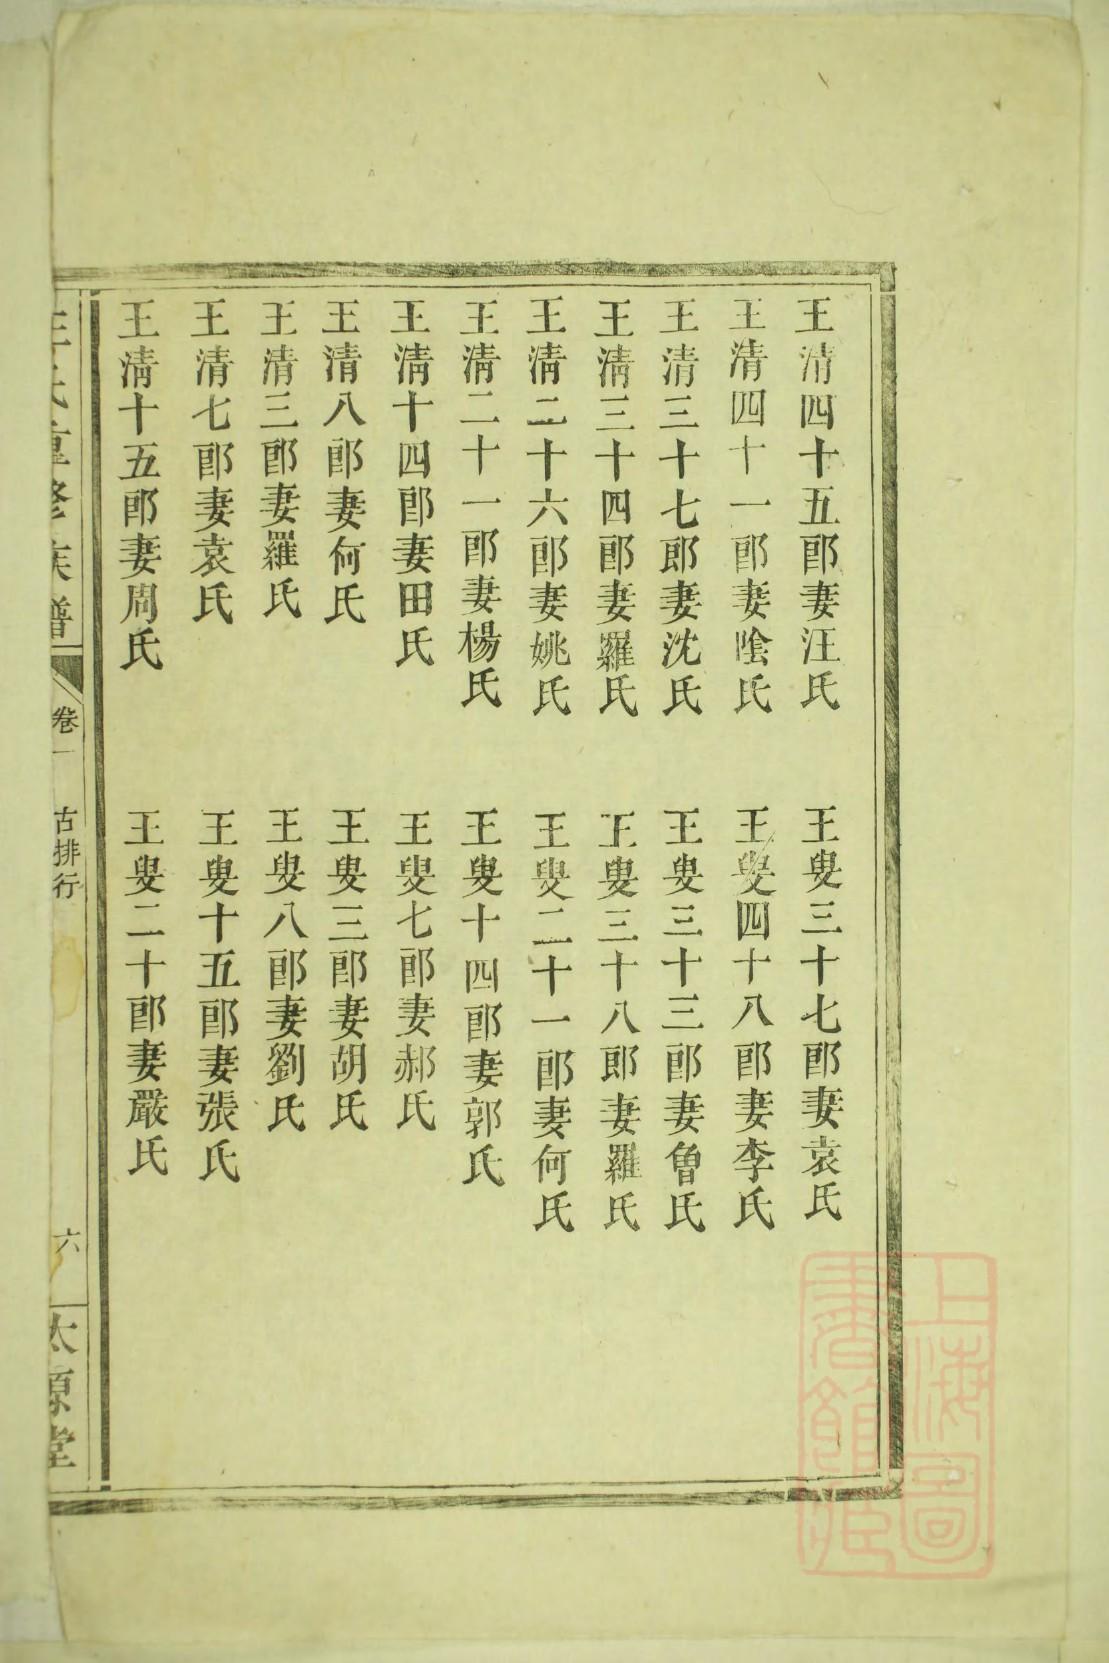 王清四十五郎妻汪氏
王叟三十七郎妻袁氏
王清四十一郎妻陰氏
王叟四十八郎妻李氏
王清三十七郎妻沈氏
王叟三十三郎妻魯氏
王清三十四郎妻羅氏
王叟三十八郎妻羅氏
王清二十六郎妻姚氏
王叟二十一郎妻何氏
王清二十一郎妻楊氏
王叟十四郎妻郭氏
王清十四郎妻田氏
王叟七郎妻郝氏
王清八郎妻何氏
王叟三郎妻胡氏
王清三郎妻羅氏
王叟八郎妻劉氏
王清七郎妻袁氏
王叟十五郎妻張氏
王清十五郎妻周氏
王叟二十郎妻嚴氏
王氏重修族譜
卷一
古排行
六
太原堂
上海圖書館藏